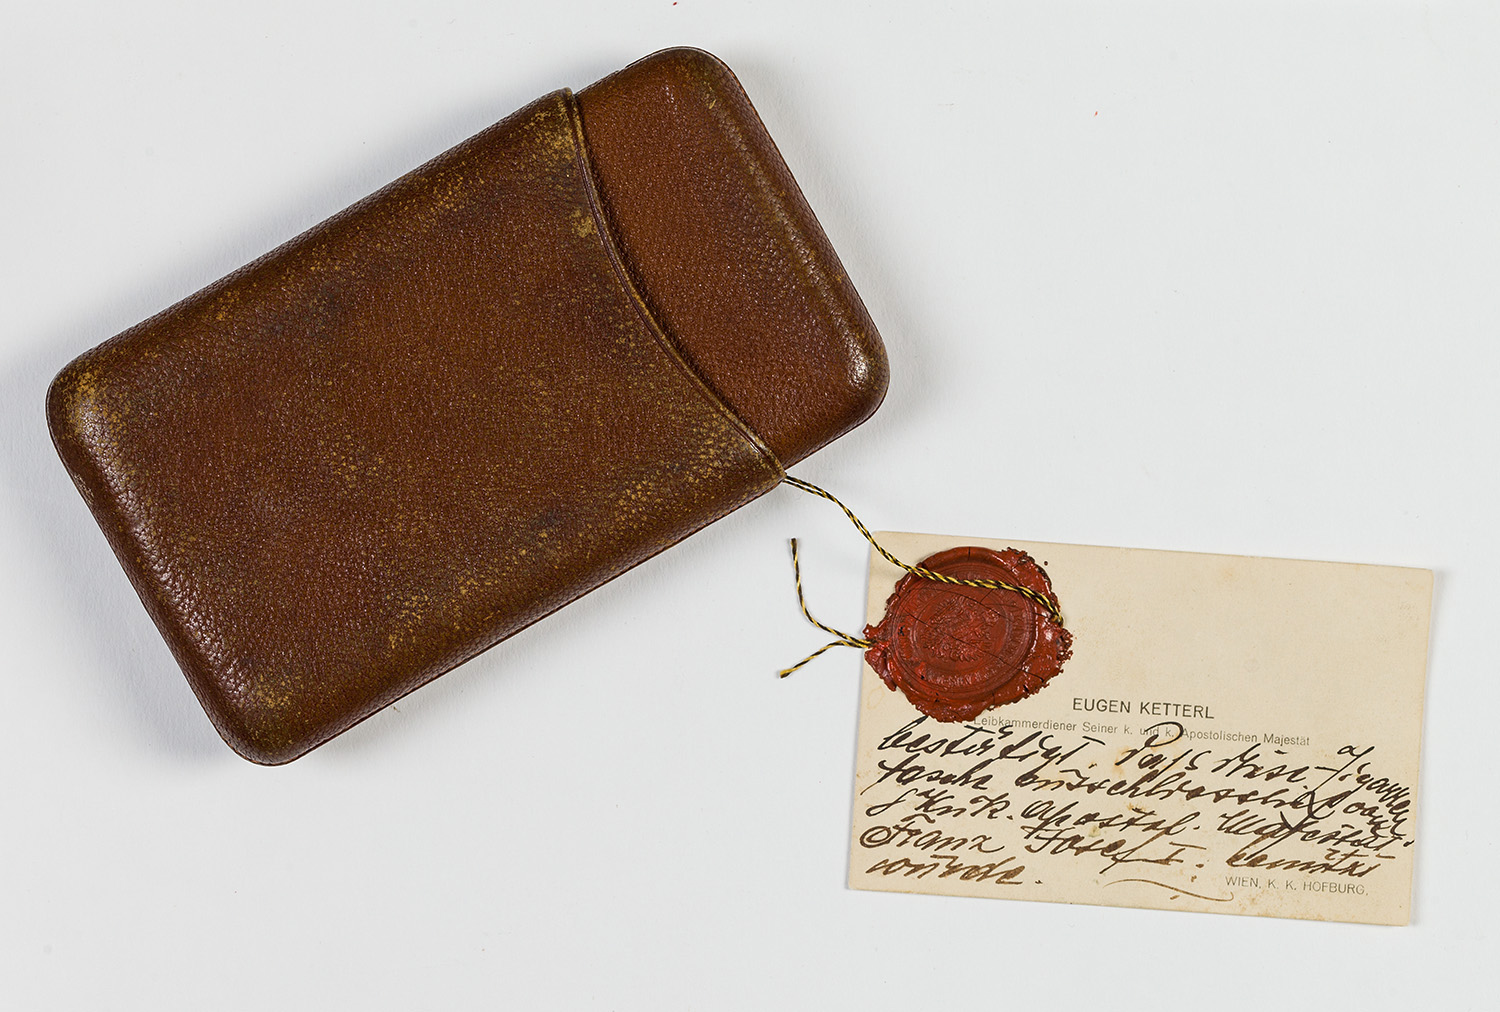 EUGEN KETTERL
Leibkammerdiener Seiner k. und k. Apostolischen Majestät
bestätigt. Daß diese Zigarren
tasche ausschliesslich von
S k u k. Apostol. Majestät
Franz Josef I. benützt
wurde.
WIEN, K. K. HOFBURG.